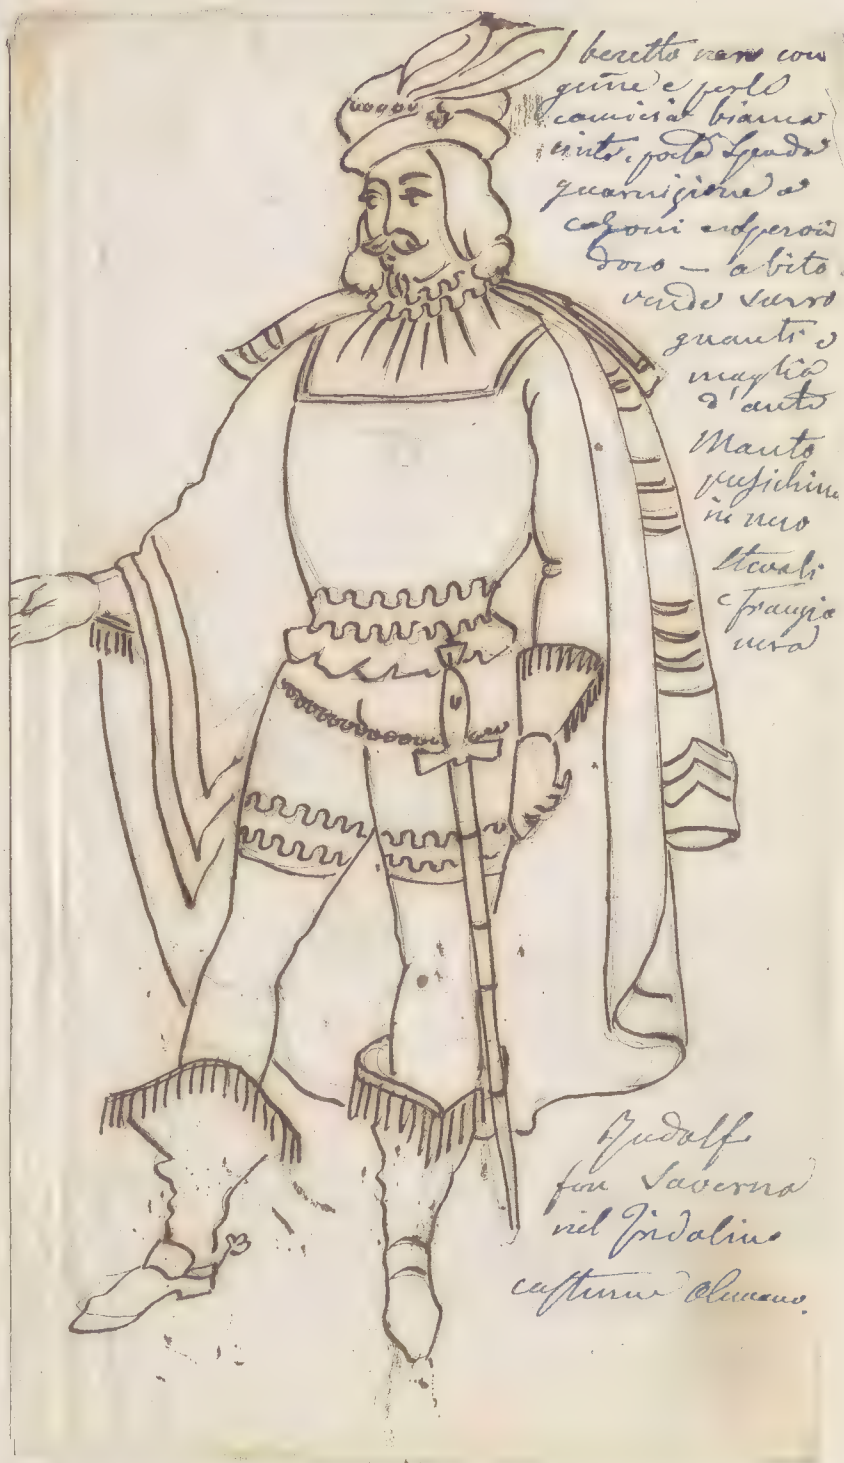 beretto nero con
gime e perle
camicia bianca
cinto, porta Spada
guarnizione a
calzoni e speroni
d'oro — abito
verde scuro
guanti e
maglia
d'ante
Manto
in nero
Stivali
e frangia
nera
Rudolf
fon Saverna
nel Fridolino
costume Alemano.